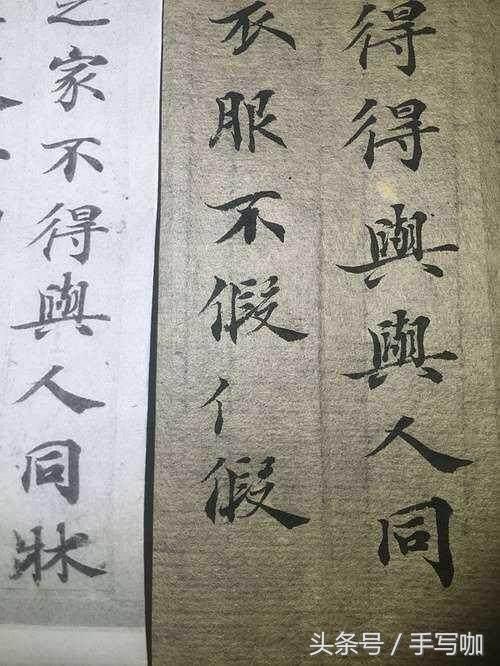 得得與與人同
衣服不假亻假
之家不得與人同牀
头条号 / 手写咖